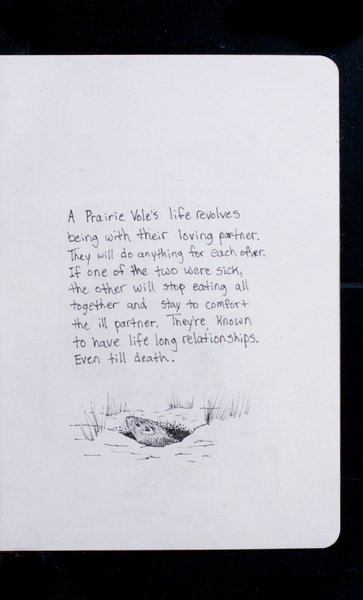 A Prairie Vole's life revolves
being with their loving partner.
They will do anything for each other.
If one of the two were sick,
the other will stop eating all
together and stay to comfort
the ill partner. They're known
to have life long relationships.
Even till death.